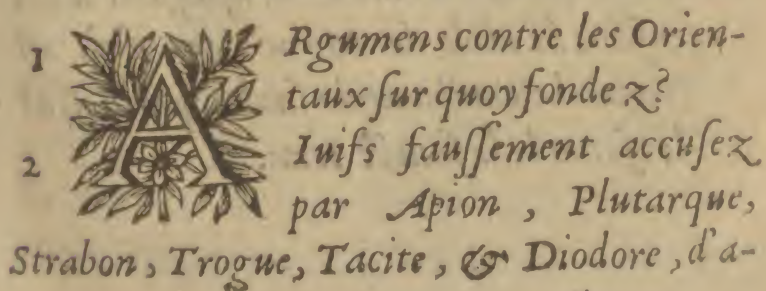 1 ARgumens contre les Orien-
taux ſur quoy fondez?
2 Iuifs fauſſement accuſez
par Apion, Plutarque,
Strabon, Trogue, Tacite, & Diodore, d'a-